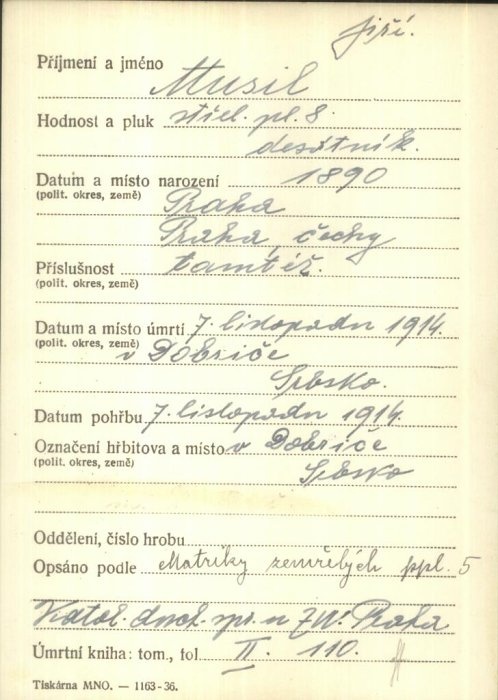 Jiří.
Příjmení a jméno Musil
Hodnost a pluk střel. pl. 8.
desátník.
Datum a místo narození 1890
(polit. okres, země) Praha
Praha, čechy
Příslušnost tamtéž.
(polit. okres, země)
Datum a místo úmrtí 7. listopadu 1914.
(polit. okres, země) v Dobriče
Srbsko.
Datum pohřbu 7. listopadu 1914.
Označení hřbitova a místo v Dobriče
(polit. okres, země) Srbsko
Oddělení, číslo hrobu
Opsáno podle Matriky zemřelých ppl. 5
Katol. duch. spr. u ZV. Praha
Úmrtní kniha: tom., fol. II. 110.
Tiskárna MNO. — 1163-36.